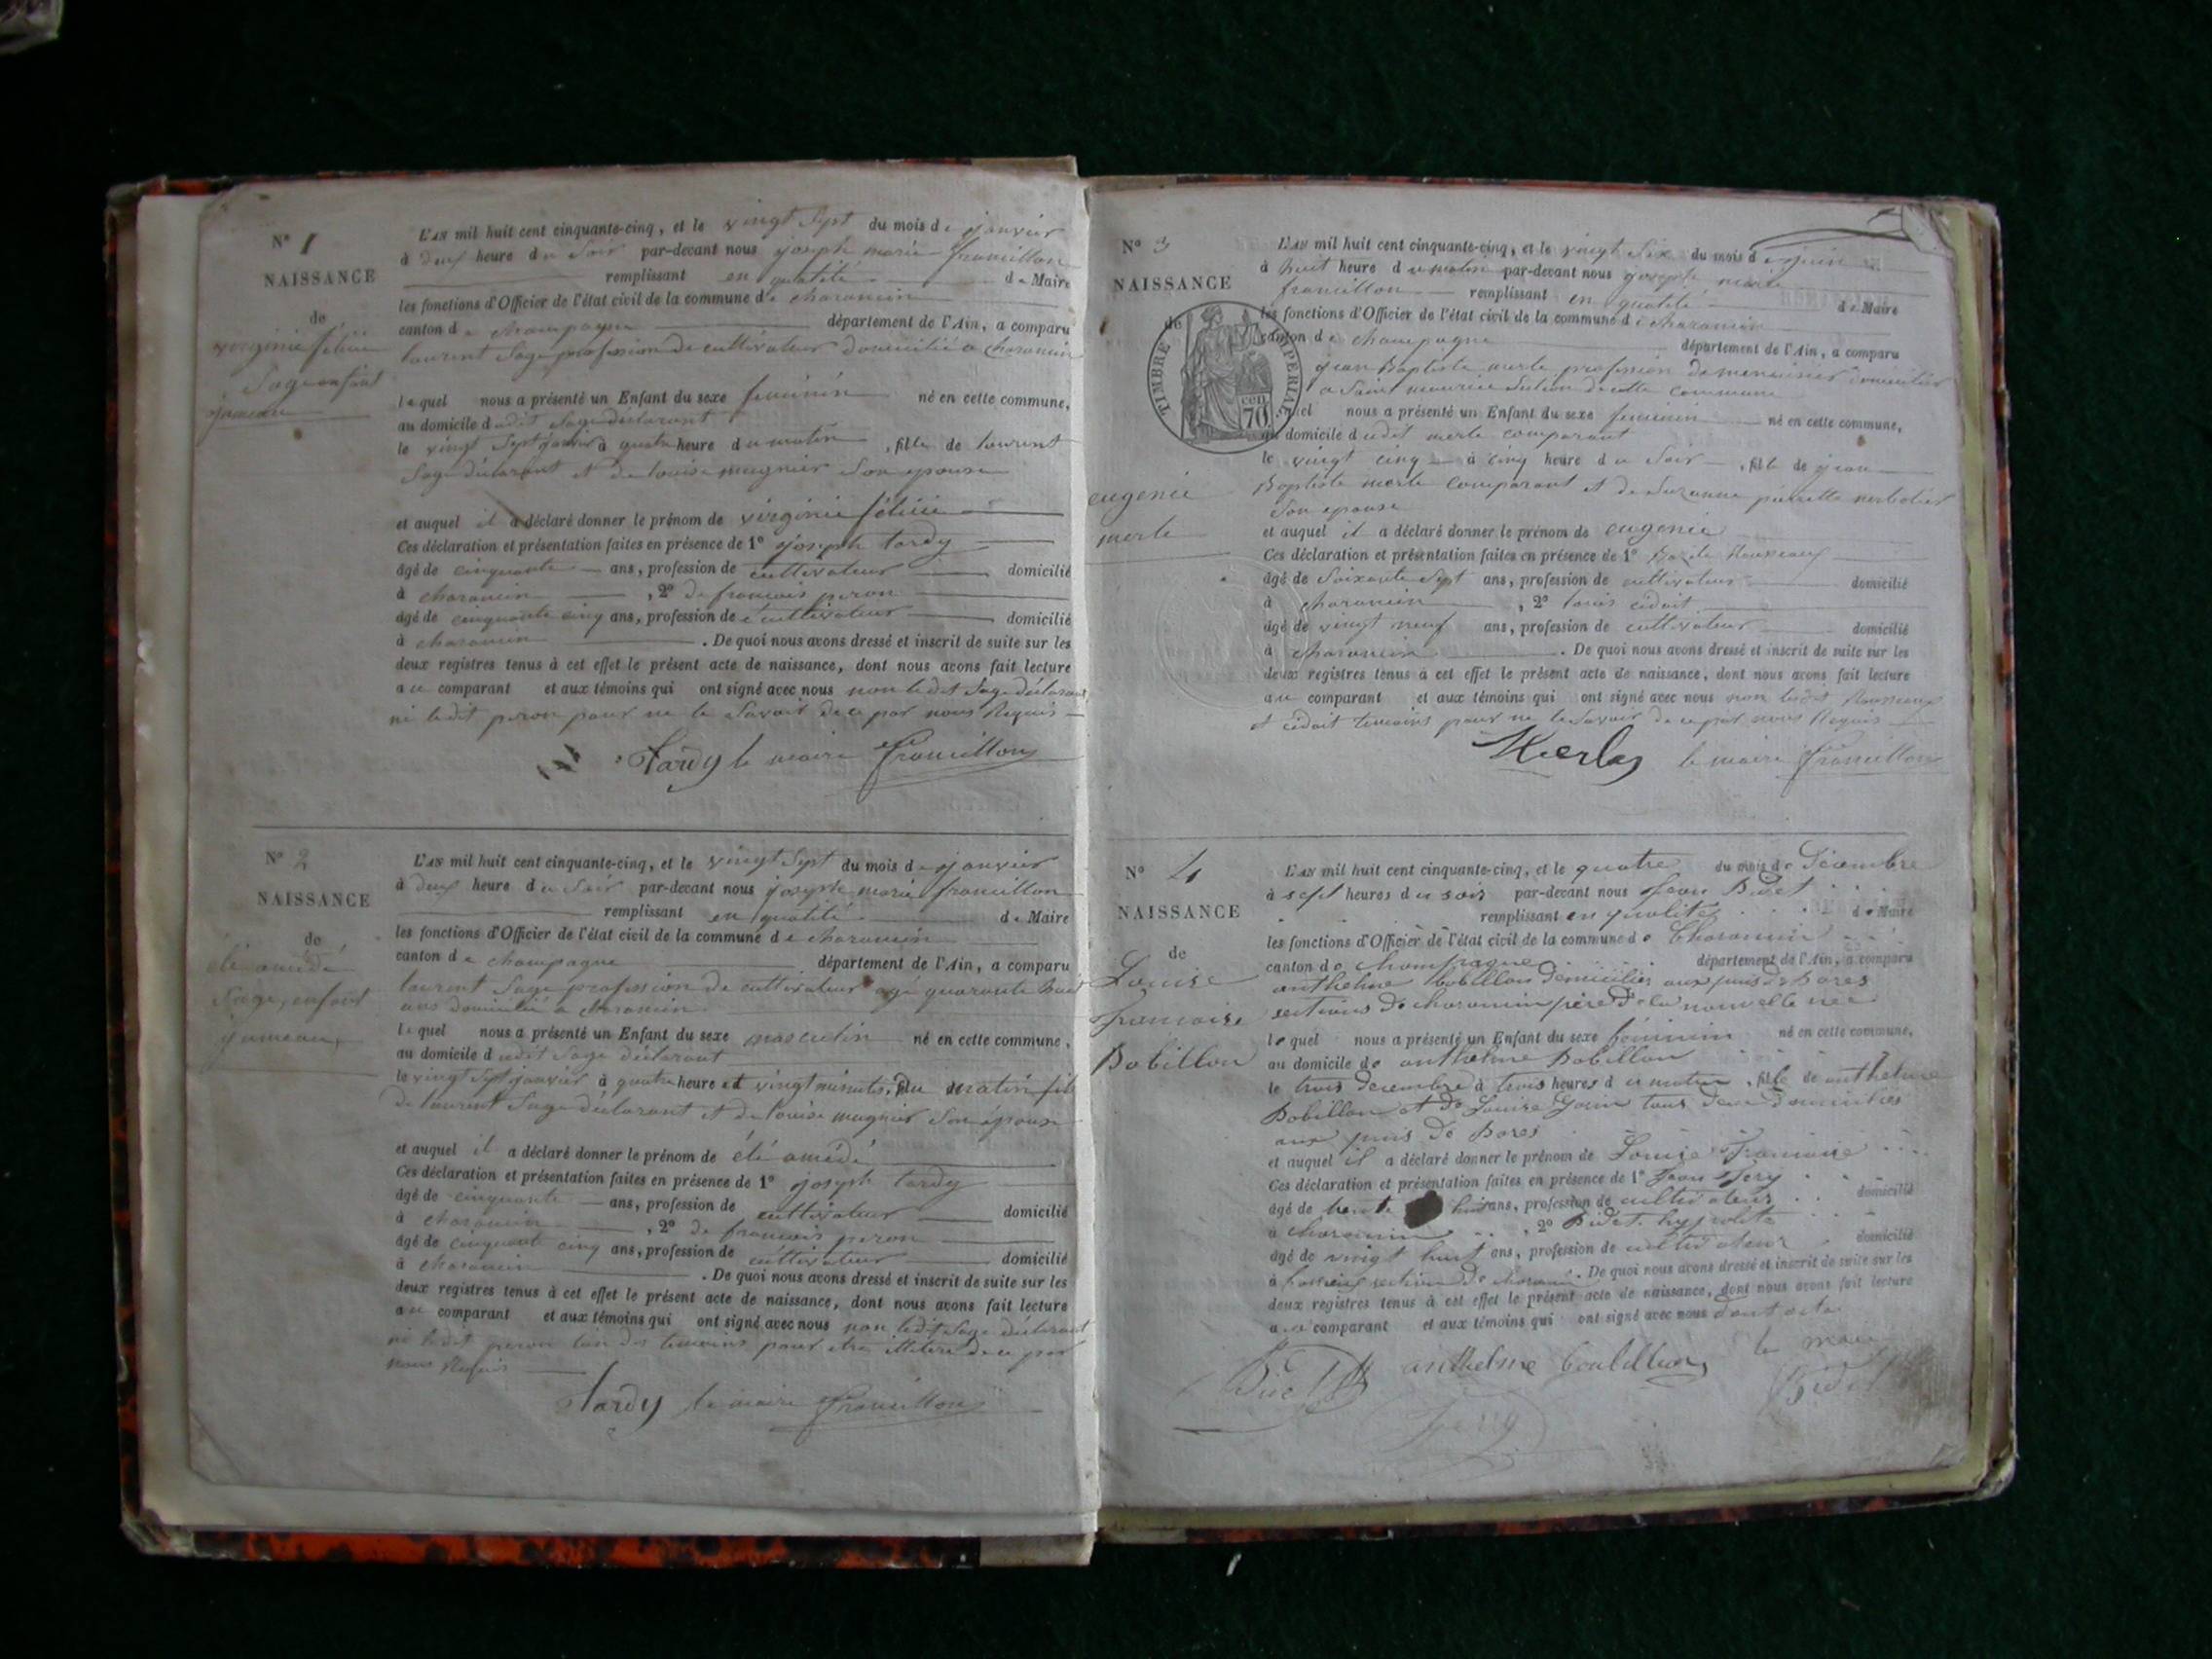 N° 1
NAISSANCE
de
virginie félicie
Sage enfant
jumeau
L'AN mil huit cent cinquante-cinq, et le vingt Sept du mois de janvier
à deux heure du Soir par-devant nous joseph marie francillon
remplissant en qualité de Maire
les fonctions d'Officier de l'état civil de la commune de charancin
canton de champagne département de l'Ain, a comparu
laurent Sage profession de cultivateur domicilié a charancin
lequel nous a présenté un Enfant du sexe feminin né en cette commune,
au domicile dudit Sage déclarant
le vingt Sept janvier à quatre heure du matin, fille de laurent
Sage déclarant et de louise magnier Son epouse
et auquel il a déclaré donner le prénom de virginie félicie
Ces déclaration et présentation faites en présence de 1° joseph tardy
âgé de cinquante ans, profession de cultivateur domicilié
à charancin, 2° de francois peron
âgé de cinquante cinq ans, profession de cultivateur domicilié
à charancin. De quoi nous avons dressé et inscrit de suite sur les
deux registres tenus à cet effet le présent acte de naissance, dont nous avons fait lecture
au comparant et aux témoins qui ont signé avec nous non ledit Sage déclarant
ni ledit peron pour ne le Savoir de ce par nous Requis
Tardy le maire francillon
N° 2
NAISSANCE
de
élé amédé
Sage, enfant
jumeau,
L'AN mil huit cent cinquante-cinq, et le vingt Sept du mois de janvier
à deux heure du Soir par-devant nous joseph marie francillon
remplissant en qualité de Maire
les fonctions d'Officier de l'état civil de la commune de charancin
canton de champagne département de l'Ain, a comparu
laurent Sage profession de cultivateur agé quarante huit
ans domicilié a charancin
lequel nous a présenté un Enfant du sexe masculin né en cette commune,
au domicile dudit Sage déclarant
le vingt Sept janvier à quatre heure et vingt minutes, du matin fils
de laurent Sage déclarant et de louise magnier Son épouse
et auquel il a déclaré donner le prénom de élé amédé
Ces déclaration et présentation faites en présence de 1° joseph tardy
âgé de cinquante ans, profession de cultivateur domicilié
à charancin, 2° de francois peron
âgé de cinquante cinq ans, profession de cultivateur domicilié
à charancin. De quoi nous avons dressé et inscrit de suite sur les
deux registres tenus à cet effet le présent acte de naissance, dont nous avons fait lecture
au comparant et aux témoins qui ont signé avec nous non ledit Sage déclarant
ni ledit peron l'un des temoins pour etre illitéré de ce par
nous Requis
Tardy le maire francillon
N° 3
NAISSANCE
de
TIMBRE IMPÉRIAL
70 cen
eugenie
merle
L'AN mil huit cent cinquante-cinq, et le vingt Six du mois de juin
à huit heure du matin par-devant nous joseph marie
francillon remplissant en qualité de Maire
les fonctions d'Officier de l'état civil de la commune de charancin
canton de champagne département de l'Ain, a comparu
jean Baptiste merle profession de menuisier domicilié
a Saint maurice Section de cette commune
lequel nous a présenté un Enfant du sexe feminin né en cette commune,
au domicile dudit merle comparant
le vingt cinq à cinq heure du Soir, fille de jean
Baptiste merle comparant et de Suzanne pierrette
Son epouse
et auquel il a déclaré donner le prénom de eugenie
Ces déclaration et présentation faites en présence de 1°
âgé de Soixante Sept ans, profession de cultivateur domicilié
à charancin, 2° louis cidait
âgé de vingt neuf ans, profession de cultivateur domicilié
à charancin. De quoi nous avons dressé et inscrit de suite sur les
deux registres tenus à cet effet le présent acte de naissance, dont nous avons fait lecture
au comparant et aux témoins qui ont signé avec nous non ledit
et cidait temoins pour ne le Savoir de ce par nous Requis
Merle le maire francillon
N° 4
NAISSANCE
de
Louise
francoise
Bobillon
L'AN mil huit cent cinquante-cinq, et le quatre du mois de Décembre
à sept heures du soir par-devant nous Jean Bidet
remplissant en qualité de Maire
les fonctions d'Officier de l'état civil de la commune de Charancin
canton de champagne département de l'Ain, a comparu
anthelme bobillon domicilier aux puis de bores
sections de charancin père de la nouvelle née
lequel nous a présenté un Enfant du sexe féminin né en cette commune,
au domicile de anthelme Bobillon
le trois decembre à trois heures du matin, fille de anthelme
Bobillon et de Louise tous deux domiciliés
aux puis de Bores
et auquel il a déclaré donner le prénom de Louise francoise
Ces déclaration et présentation faites en présence de 1° Jean
âgé de trente huit ans, profession de cultivateur domicilié
à charancin, 2° Bidet hypolite
âgé de vingt huit ans, profession de cultivateur domicilié
à section de charancin. De quoi nous avons dressé et inscrit de suite sur les
deux registres tenus à cet effet le présent acte de naissance, dont nous avons fait lecture
au comparant et aux témoins qui ont signé avec nous dont acte
le maire
Bidet anthelme boubillion Bidet